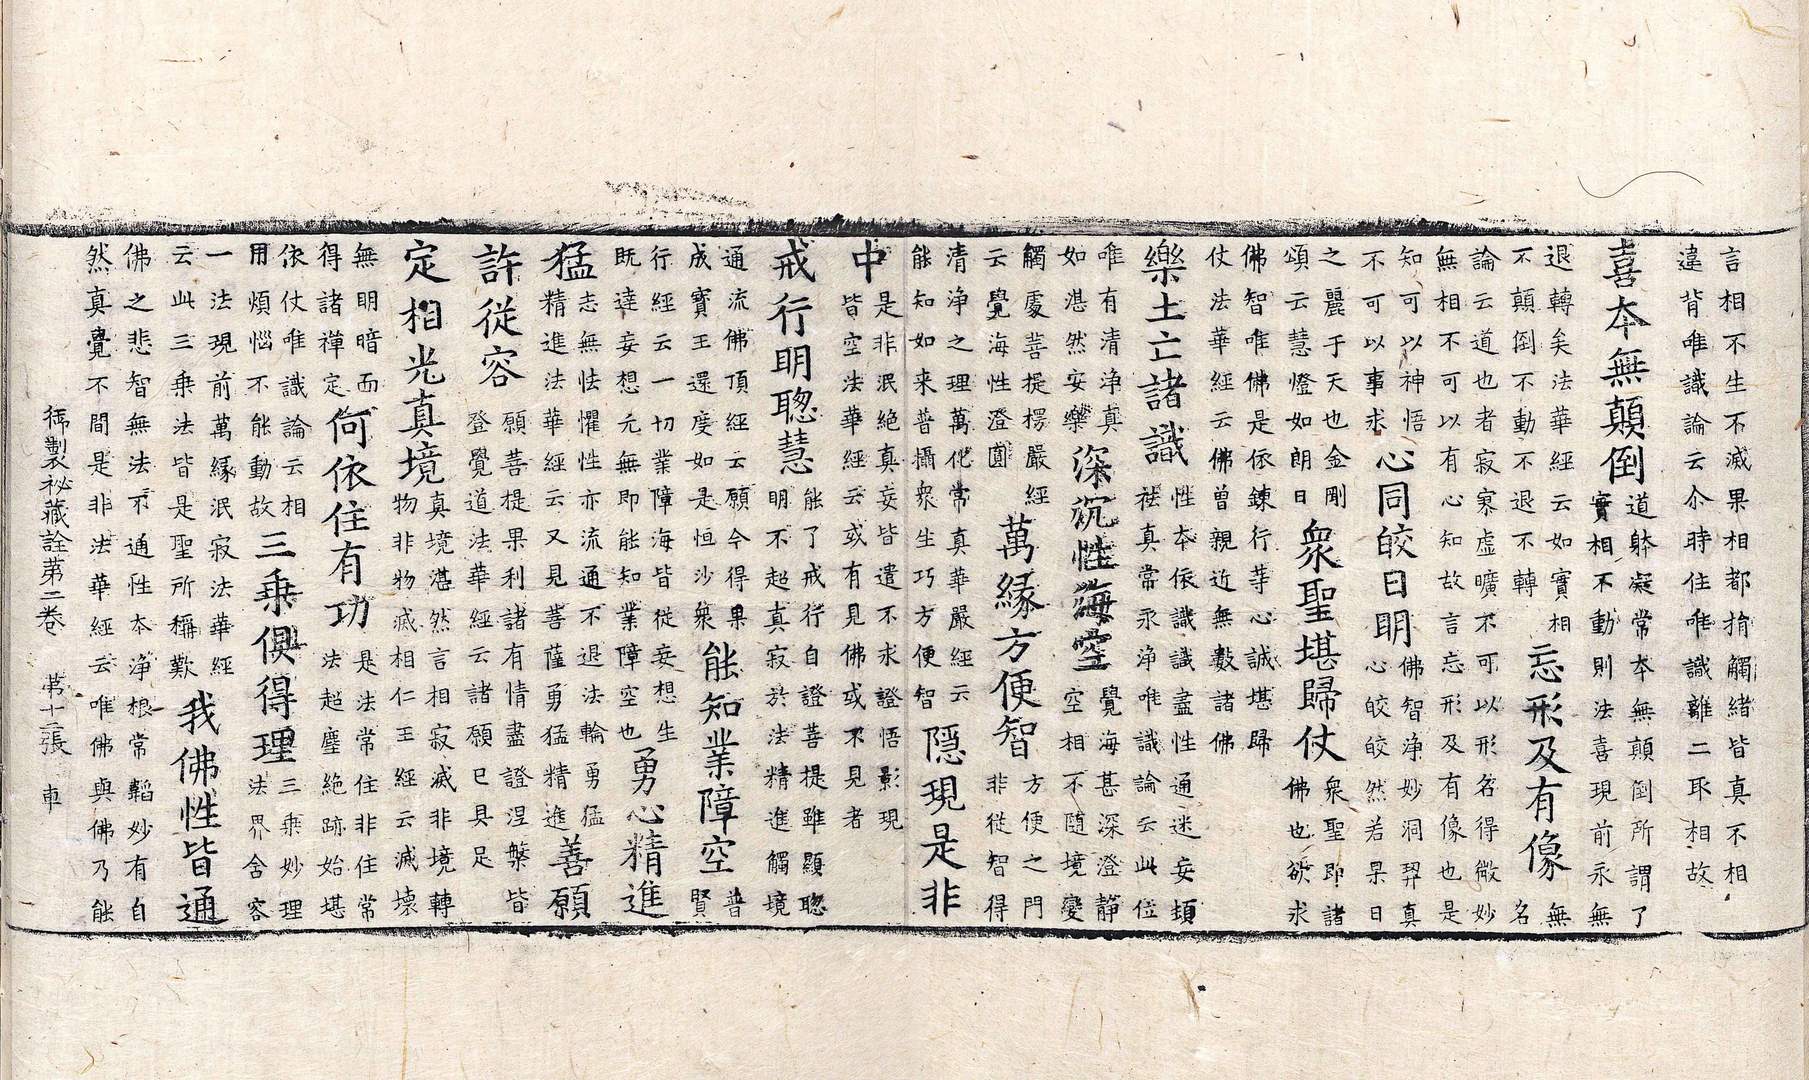 言相不生不滅果相都揃觸緒皆真不相
違背唯識論云尒時住唯識離二取相故
喜本無顛倒
道躰凝常本無顛倒所謂了
實相不動則法喜現前永無
退轉矣法華經云如實相
不顛倒不動不退不轉
忘形及有像
無
名
論云道也者寂寥虛曠不可以形名得微妙
無相不可以有心知故言忘形及有像也是
知可以神悟
不可以事求
心同皎日明
佛智淨妙洞羿真
心皎皎然若杲日
之麗于天也金剛
頌云慧燈如朗日
眾聖堪歸仗
眾聖即諸
佛也欲求
佛智唯佛是依鍊行莘心誠堪歸
仗法華經云佛曾親近無數諸佛
樂土亡諸識
性本依識識盡性通迷妄頓
祛真常永淨唯識論云此位
唯有清淨真
如湛然安樂
深沉性海空
覺海甚深澄靜
空相不隨境變
觸處菩提楞嚴經
云覺海性澄圓
萬緣方便智
方便之門
非從智得
清淨之理萬化常真華嚴經云
能知如来普攝眾生巧方便智
隱現是非
中
是非泯絕真妄皆遣不求證悟影現
皆空法華經云或有見佛或不見者
戒行明聦慧
能了戒行自證菩提雖顯聦
明不起真寂於法精進觸境
通流佛頂經云願今得果
成寶王還度如是恒沙眾
能知業障空
普
賢
行經云一切業障海皆從妄想生
既達妄想元無即能知業障空也
勇心精進
猛
志無怯懼性亦流通不退法輪勇猛
精進法華經云又見菩薩勇猛精進
善願
許從容
願菩提果利諸有情盡證涅槃皆
登覺道法華經云諸願已具足
定相光真境
真境湛然言相寂滅非境轉
物非物滅相仁王經云滅壞
無明暗而
得諸禪定
何依住有功
是法常住非住常
法超塵絕跡始堪
依仗唯識論云相
用煩惱不能動故
三乘俱得理
三乘妙理
法界舍容
一法現前萬緣泯寂法華經
云此三乘法皆是聖所稱歎
我佛性皆通
佛之悲智無法不通性本淨根常韜妙有自
然真覺不間是非法華經云唯佛與佛乃能
御製秘藏詮第二卷 第十二張 車